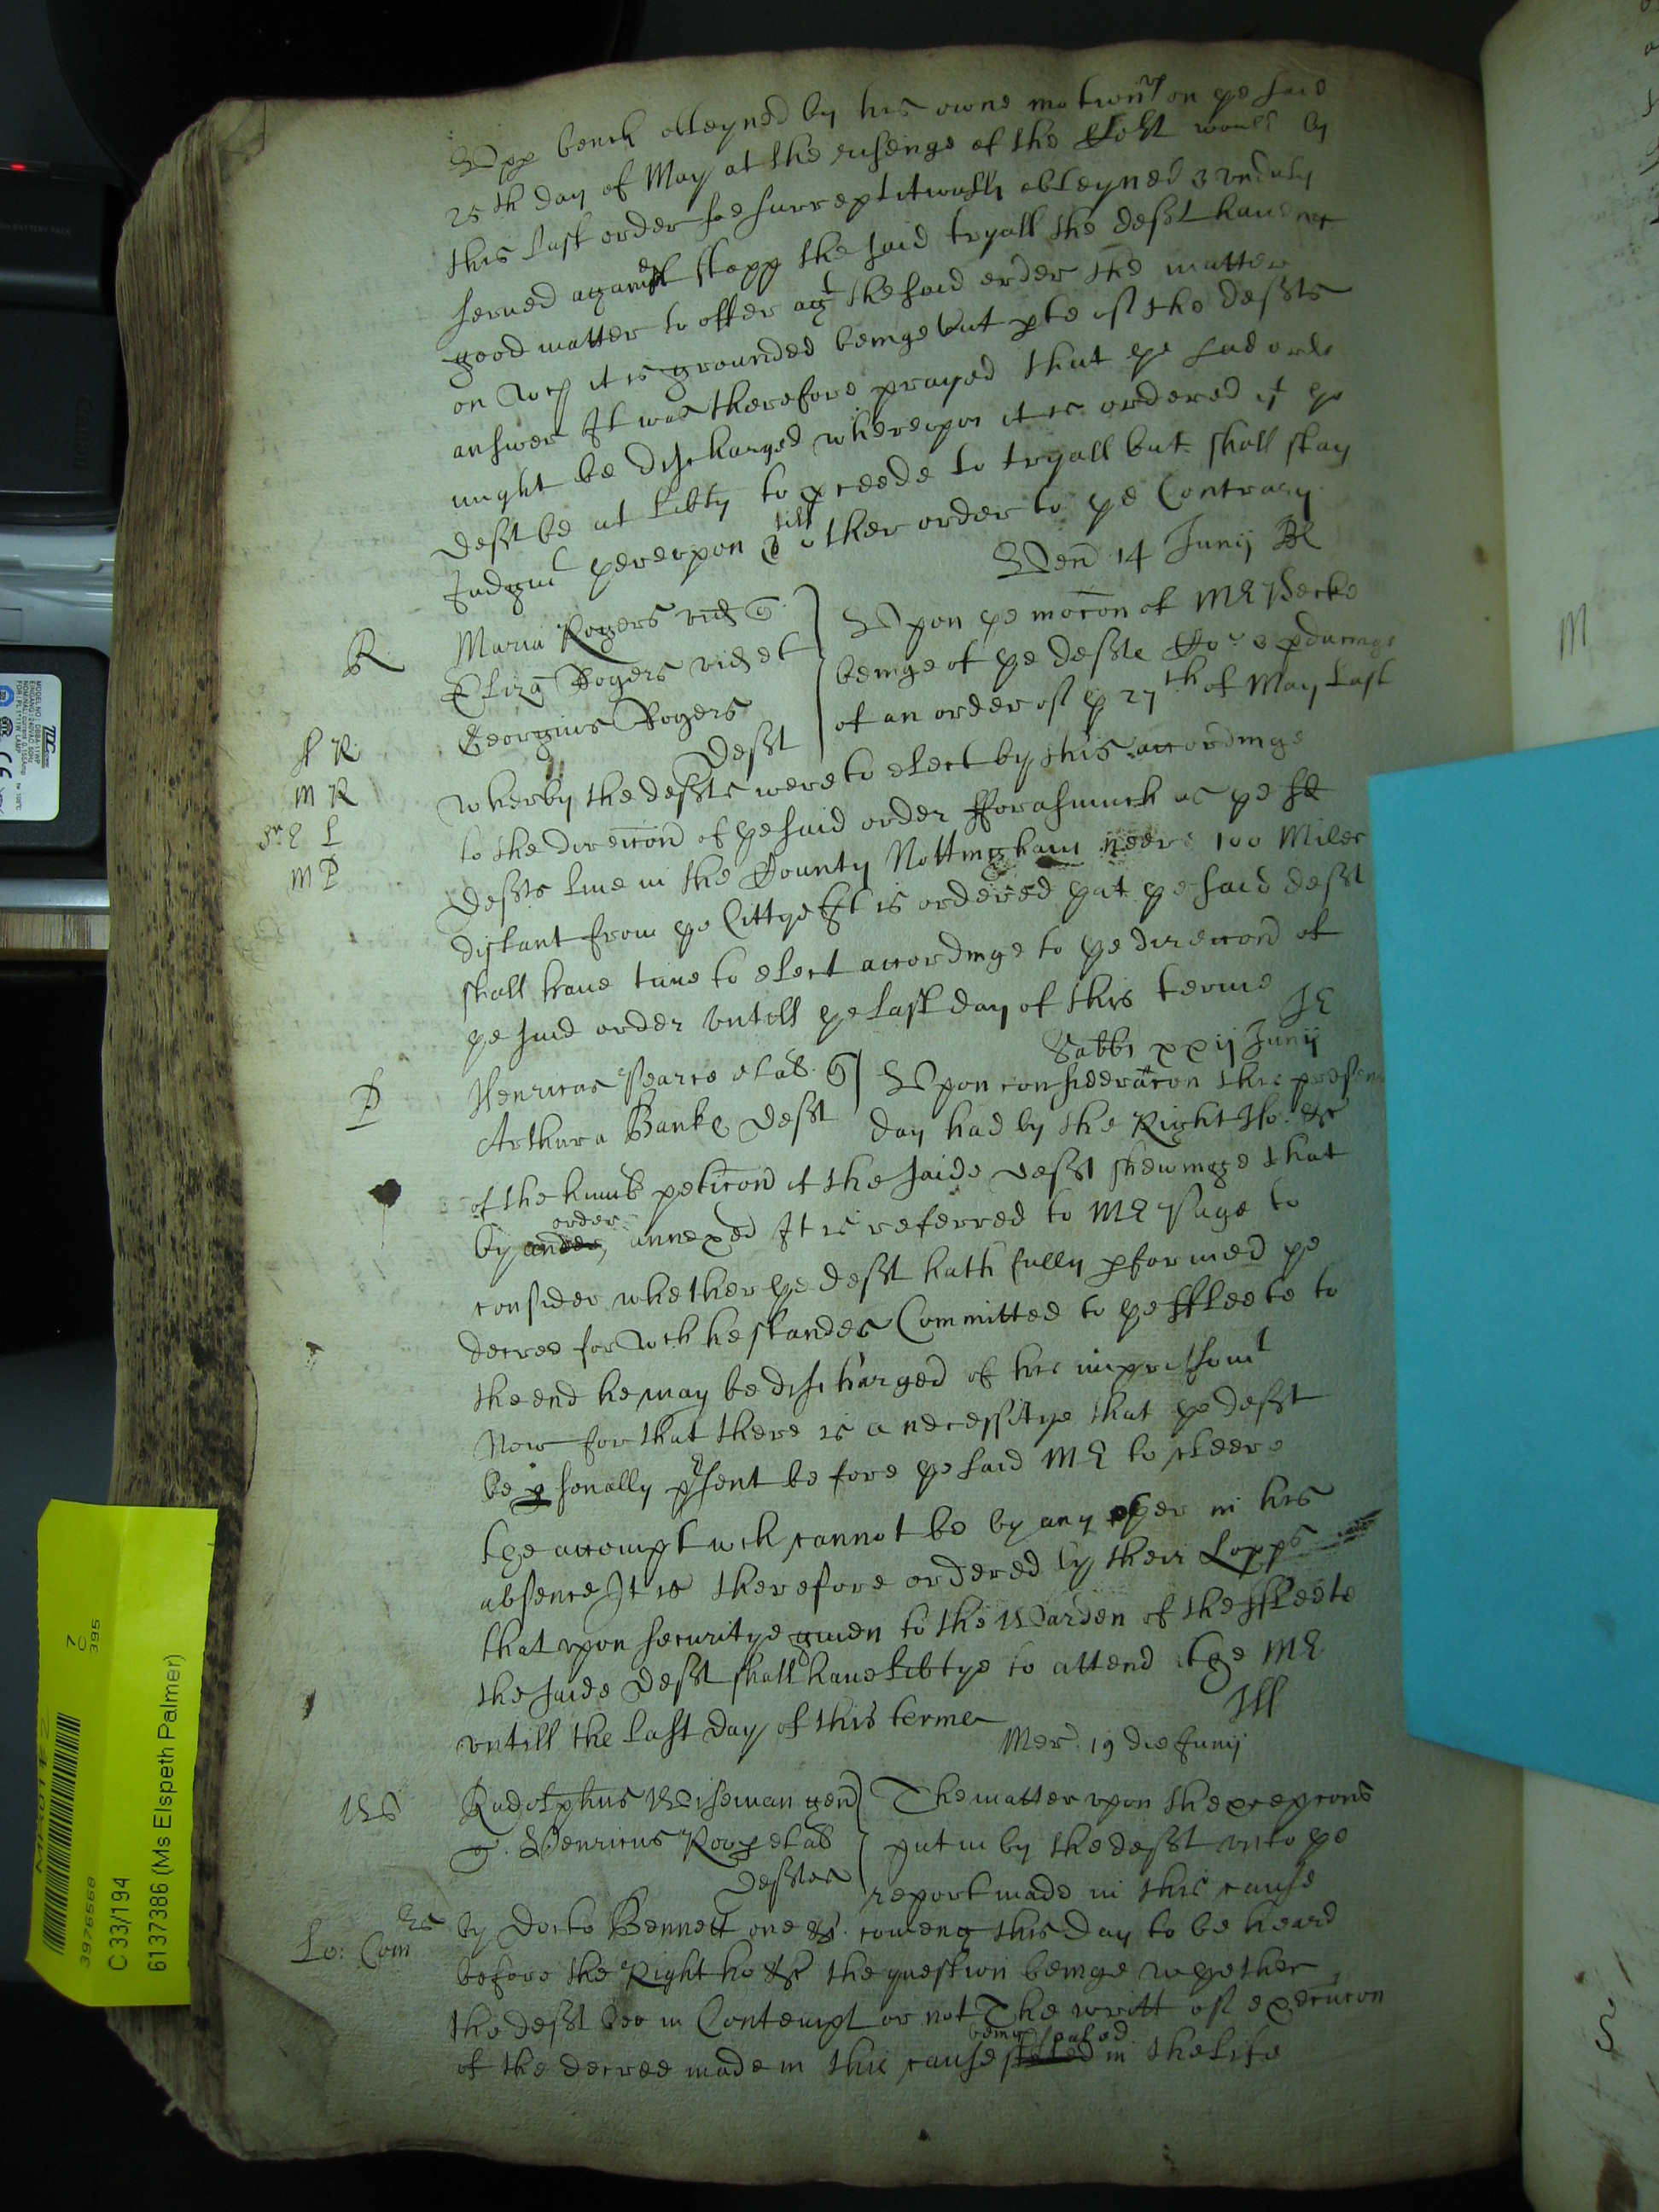 Upp bench obteyned by his owne motion on ye said
25th day of May at the risenge of the Cort would by
this last order soe surreptitiouslly obteyned & vnduly
served against stopp the said tryall the deft haueing
good matter to offer agt the said order the matter
on wch it is grounded beinge but pte of the defts
answer It was therefore prayed that ye said orde
might be discharged wherevpon it is ordered yt ye
deft be at libty to pceede to tryall but shall stay
Judgmt therevpon till other order to ye Contrary
Wen 14 Junij
R
Maria Rogers vid
Eliza Rogers vid et
Georgius Rogers
Deft
Upon ye mocon of Mr
beinge of ye defte Co & pducinge
of an order of ye 27th of May last
S R
M R
Sr E L
M P
wherby the defts were to elect by this accordinge
to the direccon of ye said order fforasmuch as ye sd
defts liue in the County Nottingham neere 100 Miles
distant from ye Cittye It is ordered yat ye said deft
shall haue time to elect accordinge to ye direccon of
ye said order vntill ye last day of this terme
Sabbi xxij Junij
P
Henricus Pearce et al
Arthura Banke deft
Upon consideracon this present
day had by the Right Ho: &c
of the humb peticon of the saide deft shewinge that
by order annexed It is referred to Mr Page to
consider whether ye deft hath fully pformed ye
decree for wch he standes Committed to ye ffleete to
the end he may be discharged of his imprisonmt
Now for that there is a necessitye that ye deft
be psonally psent before ye said Mr to cleere
the accompt wch cannot be by any other in his
absence It is therefore ordered by their Lopps
that vpon securitye giuen to the Warden of the ffleete
the saide deft shall haue libtye to attend the Mr
vntill the last day of this terme
Mer 19 die Junij
Radolphus Wiseman gen
Henricus Roope et al
Deftes
The matter vpon the excepcons
put in by the deft vnto ye
report made in this cause
Lo: Comrs
by Docto Bennett one &c comeng this day to be heard
before the Right ho &c the question beinge whether
the deft bee in Contempt or not The writt of execucon
of the decree made in this cause being sealed in the life
M
C 33/194
6137386 (Ms Elspeth Palmer)
3976568
7
C
395